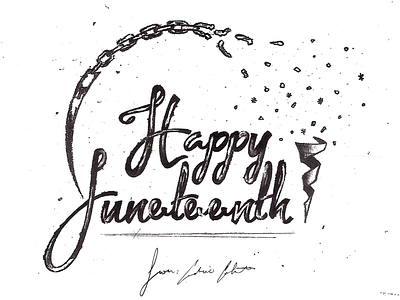 Happy
Juneteenth